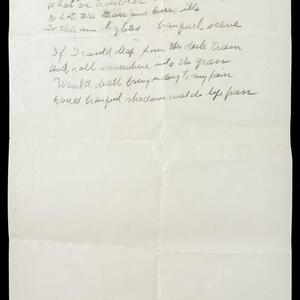 What are
What are tears and
To this sun lighted tranquil scene
If I could leap from this dark train
and roll somewhere into the grass
Would death bring ending to my pain
Would tranquil shadows watch life pass